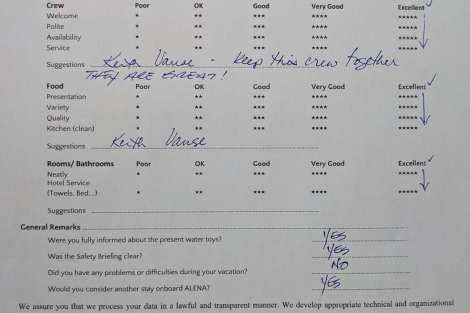 Crew Poor OK Good Very Good Excellent ✓
Welcome * ** *** **** *****
Polite * ** *** **** *****
Availability * ** *** **** *****
Service * ** *** **** *****
Suggestions Keith Vause - Keep this crew together
THEY ARE GREAT!
Food Poor OK Good Very Good Excellent ✓
Presentation * ** *** **** *****
Variety * ** *** **** *****
Quality * ** *** **** *****
Kitchen (clean) * ** *** **** *****
Suggestions Keith Vause
Rooms/ Bathrooms Poor OK Good Very Good Excellent ✓
Neatly * ** *** **** *****
Hotel Service
(Towels, Bed...) * ** *** **** *****
Suggestions
General Remarks
Were you fully informed about the present water toys? YES
Was the Safety Briefing clear? YES
Did you have any problems or difficulties during your vacation? NO
Would you consider another stay onboard ALENA? YES
We assure you that we process your data in a lawful and transparent manner. We develop appropriate technical and organizational